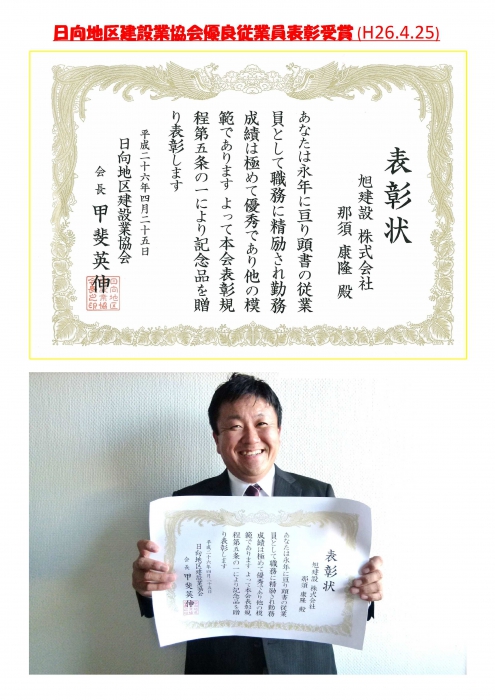 日向地区建設業協会優良従業員表彰受賞(H26.4.25)
表彰状
旭建設 株式会社
那須 康隆 殿
あなたは永年に亘り頭書の従業
員として職務に精励され勤務
成績は極めて優秀であり他の模
範であります よって本会表彰規
程第五条の一により記念品を贈
り表彰します
平成二十六年四月二十五日
日向地区建設業協会
会長 甲斐英伸
表彰状
旭建設 株式会社
那須 康隆 殿
あなたは永年に亘り頭書の従業
員として職務に精励され勤務
成績は極めて優秀であり他の模
範であります よって本会表彰規
程第五条の一により記念品を贈
り表彰します
平成二十六年四月二十五日
日向地区建設業協会
会長 甲斐英伸